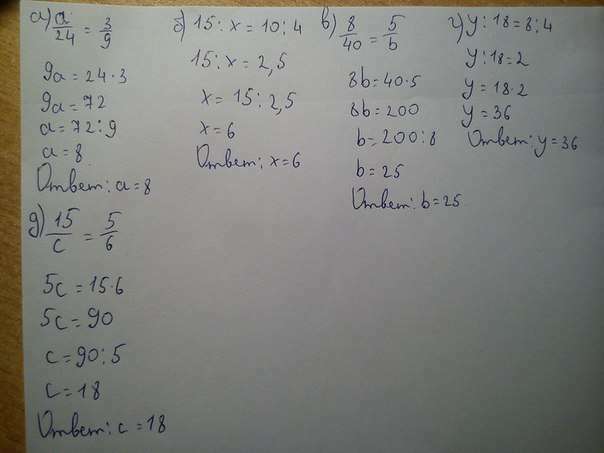 а) a/24 = 3/9
9a = 24·3
9a = 72
a = 72:9
a = 8
Ответ: a = 8
б) 15 : x = 10 : 4
15 : x = 2,5
x = 15 : 2,5
x = 6
Ответ: x = 6
в) 8/40 = 5/b
8b = 40·5
8b = 200
b = 200:8
b = 25
Ответ: b = 25
г) y : 18 = 8 : 4
y : 18 = 2
y = 18·2
y = 36
Ответ: y = 36
д) 15/c = 5/6
5c = 15·6
5c = 90
c = 90:5
c = 18
Ответ: c = 18